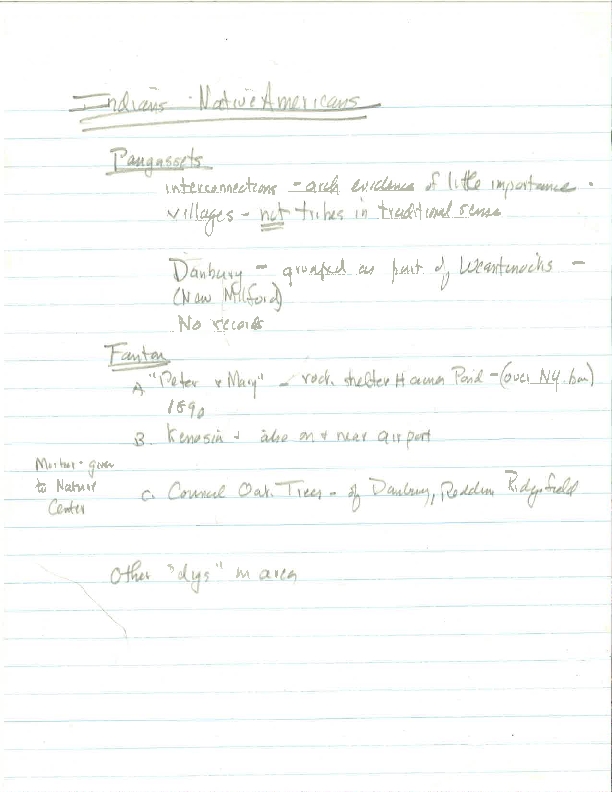 Indians - Native Americans
Paugussets
interconnections - arch evidence of little importance.
villages - not tribes in traditional sense
Danbury - grouped as part of -
(New Milford)
No records
Fanton
A "Peter & Mary" - rock shelter Pond - (over NY. )
1890
B. Kenosia & also on & near airport
Mortar - given
to Nature
Center
C. Council Oak Trees - of Danbury, Ridgefield
Other "digs" in area